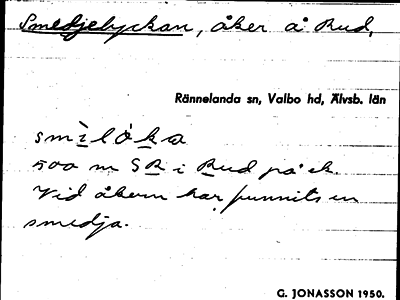 Smedjelyckan, åker å Rud,
Rännelanda sn, Valbo hd, Älvsb. län
smìlók̲a
500 m S R i Rud på ek.
Vid åkern har funnits en
smedja.
G. JONASSON 1950.